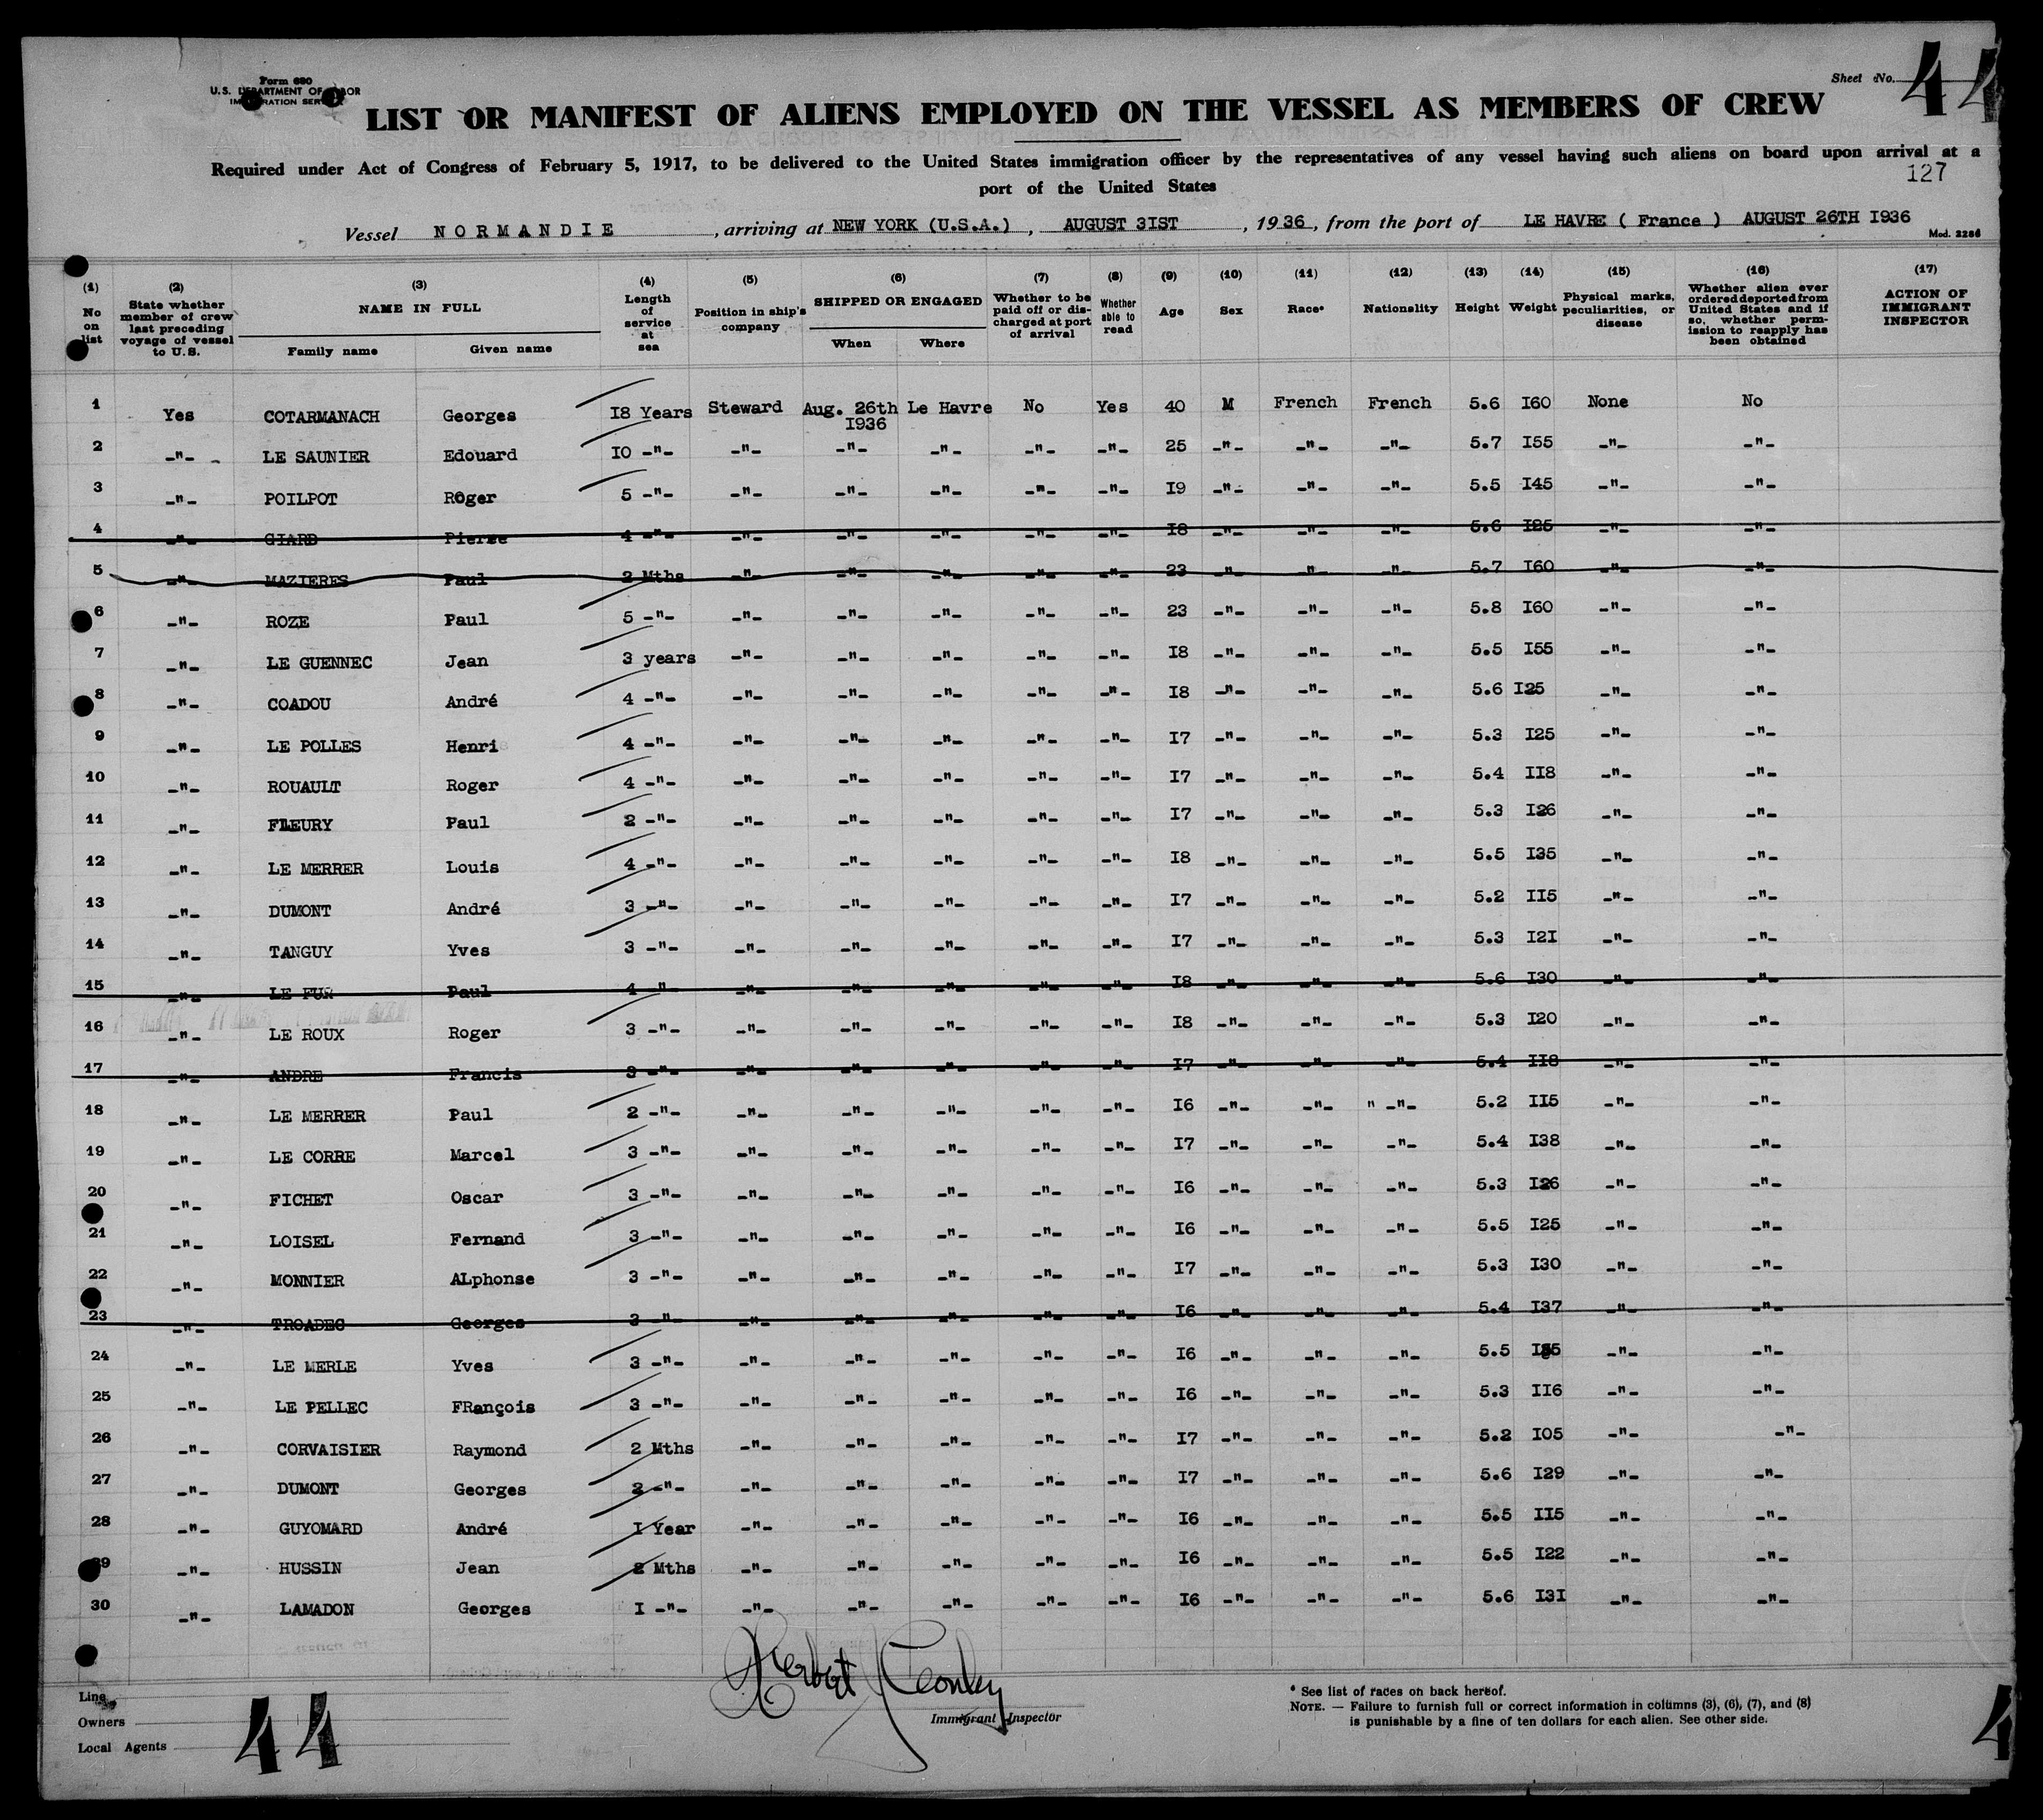 Form 680
U.S. DEPARTMENT OF LABOR
IMMIGRATION SERVICE
Sheet No. 44
LIST OR MANIFEST OF ALIENS EMPLOYED ON THE VESSEL AS MEMBERS OF CREW
Required under Act of Congress of February 5, 1917, to be delivered to the United States immigration officer by the representatives of any vessel having such aliens on board upon arrival at a
port of the United States
127
Vessel NORMANDIE, arriving at NEW YORK (U.S.A.), AUGUST 3IST, 1936, from the port of LE HAVRE ( France ) AUGUST 26TH I936
Mod. 2286
(1) No on list
(2) State whether member of crew last preceding voyage of vessel to U.S.
(3) NAME IN FULL Family name Given name
(4) Length of service at sea
(5) Position in ship's company
(6) SHIPPED OR ENGAGED When Where
(7) Whether to be paid off or discharged at port of arrival
(8) Whether able to read
(9) Age
(10) Sex
(11) Race*
(12) Nationality
(13) Height
(14) Weight
(15) Physical marks, peculiarities, or disease
(16) Whether alien ever ordered deported from United States and if so, whether permission to reapply has been obtained
(17) ACTION OF IMMIGRANT INSPECTOR
1 Yes COTARMANACH Georges I8 Years Steward Aug. 26th I936 Le Havre No Yes 40 M French French 5.6 I60 None No
2 -"- LE SAUNIER Edouard IO -"- -"- -"- -"- -"- -"- 25 -"- -"- -"- 5.7 I55 -"- -"-
3 -"- POILPOT Roger 5 -"- -"- -"- -"- -"- -"- I9 -"- -"- -"- 5.5 I45 -"- -"-
4 -"- GIARD Pierre 4 -"- -"- -"- -"- -"- -"- I8 -"- -"- -"- 5.6 I25 -"- -"-
5 -"- MAZIERES Paul 2 Mths -"- -"- -"- -"- -"- 23 -"- -"- -"- 5.7 I60 -"- -"-
6 -"- ROZE Paul 5 -"- -"- -"- -"- -"- -"- 23 -"- -"- -"- 5.8 I60 -"- -"-
7 -"- LE GUENNEC Jean 3 years -"- -"- -"- -"- -"- I8 -"- -"- -"- 5.5 I55 -"- -"-
8 -"- COADOU André 4 -"- -"- -"- -"- -"- -"- I8 -"- -"- -"- 5.6 I25 -"- -"-
9 -"- LE POLLES Henri 4 -"- -"- -"- -"- -"- -"- I7 -"- -"- -"- 5.3 I25 -"- -"-
10 -"- ROUAULT Roger 4 -"- -"- -"- -"- -"- -"- I7 -"- -"- -"- 5.4 II8 -"- -"-
11 -"- FLEURY Paul 2 -"- -"- -"- -"- -"- -"- I7 -"- -"- -"- 5.3 I26 -"- -"-
12 -"- LE MERRER Louis 4 -"- -"- -"- -"- -"- -"- I8 -"- -"- -"- 5.5 I35 -"- -"-
13 -"- DUMONT André 3 -"- -"- -"- -"- -"- -"- I7 -"- -"- -"- 5.2 II5 -"- -"-
14 -"- TANGUY Yves 3 -"- -"- -"- -"- -"- -"- I7 -"- -"- -"- 5.3 I2I -"- -"-
15 -"- LE FUR Paul 4 -"- -"- -"- -"- -"- -"- I8 -"- -"- -"- 5.6 I30 -"- -"-
16 -"- LE ROUX Roger 3 -"- -"- -"- -"- -"- -"- I8 -"- -"- -"- 5.3 I20 -"- -"-
17 -"- ANDRE Francis 3 -"- -"- -"- -"- -"- -"- I7 -"- -"- -"- 5.4 II8 -"- -"-
18 -"- LE MERRER Paul 2 -"- -"- -"- -"- -"- -"- I6 -"- -"- " -"- 5.2 II5 -"- -"-
19 -"- LE CORRE Marcel 3 -"- -"- -"- -"- -"- -"- I7 -"- -"- -"- 5.4 I38 -"- -"-
20 -"- FICHET Oscar 3 -"- -"- -"- -"- -"- -"- I6 -"- -"- -"- 5.3 I26 -"- -"-
21 -"- LOISEL Fernand 3 -"- -"- -"- -"- -"- -"- I6 -"- -"- -"- 5.5 I25 -"- -"-
22 -"- MONNIER ALphonse 3 -"- -"- -"- -"- -"- -"- I7 -"- -"- -"- 5.3 I30 -"- -"-
23 -"- TROADEC Georges 3 -"- -"- -"- -"- -"- -"- I6 -"- -"- -"- 5.4 I37 -"- -"-
24 -"- LE MERLE Yves 3 -"- -"- -"- -"- -"- -"- I6 -"- -"- -"- 5.5 -"- -"-
25 -"- LE PELLEC FRançois 3 -"- -"- -"- -"- -"- -"- I6 -"- -"- -"- 5.3 II6 -"- -"-
26 -"- CORVAISIER Raymond 2 Mths -"- -"- -"- -"- -"- I7 -"- -"- -"- 5.2 I05 -"- -"-
27 -"- DUMONT Georges 2 -"- -"- -"- -"- -"- -"- I7 -"- -"- -"- 5.6 I29 -"- -"-
28 -"- GUYOMARD André I Year -"- -"- -"- -"- -"- I6 -"- -"- -"- 5.5 II5 -"- -"-
29 -"- HUSSIN Jean 2 Mths -"- -"- -"- -"- -"- I6 -"- -"- -"- 5.5 I22 -"- -"-
30 -"- LAMADON Georges I -"- -"- -"- -"- -"- -"- I6 -"- -"- -"- 5.6 I3I -"- -"-
Herbert
Immigrant Inspector
Line
Owners
Local Agents
44
* See list of races on back hereof.
NOTE. — Failure to furnish full or correct information in columns (3), (6), (7), and (8)
is punishable by a fine of ten dollars for each alien. See other side.
4